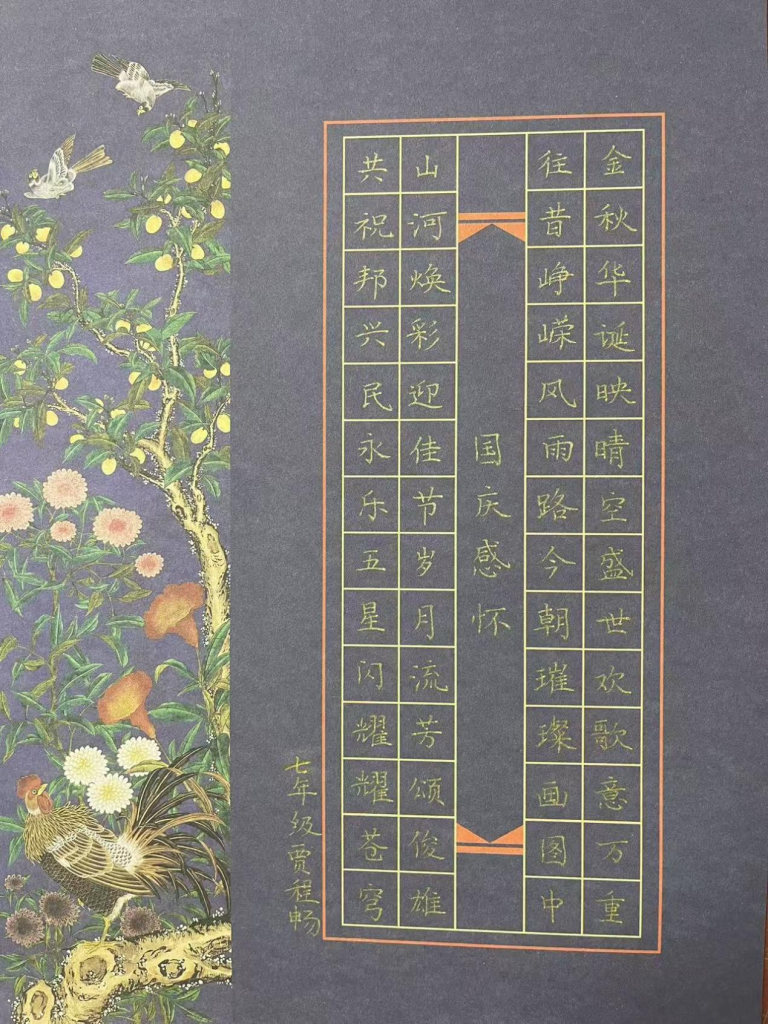 金秋华诞映晴空盛世欢歌意万重
往昔峥嵘风雨路今朝璀璨画图中
国庆感怀
山河焕彩迎佳节岁月流芳颂俊雄
共祝邦兴民永乐五星闪耀耀苍穹
七年级贾程畅